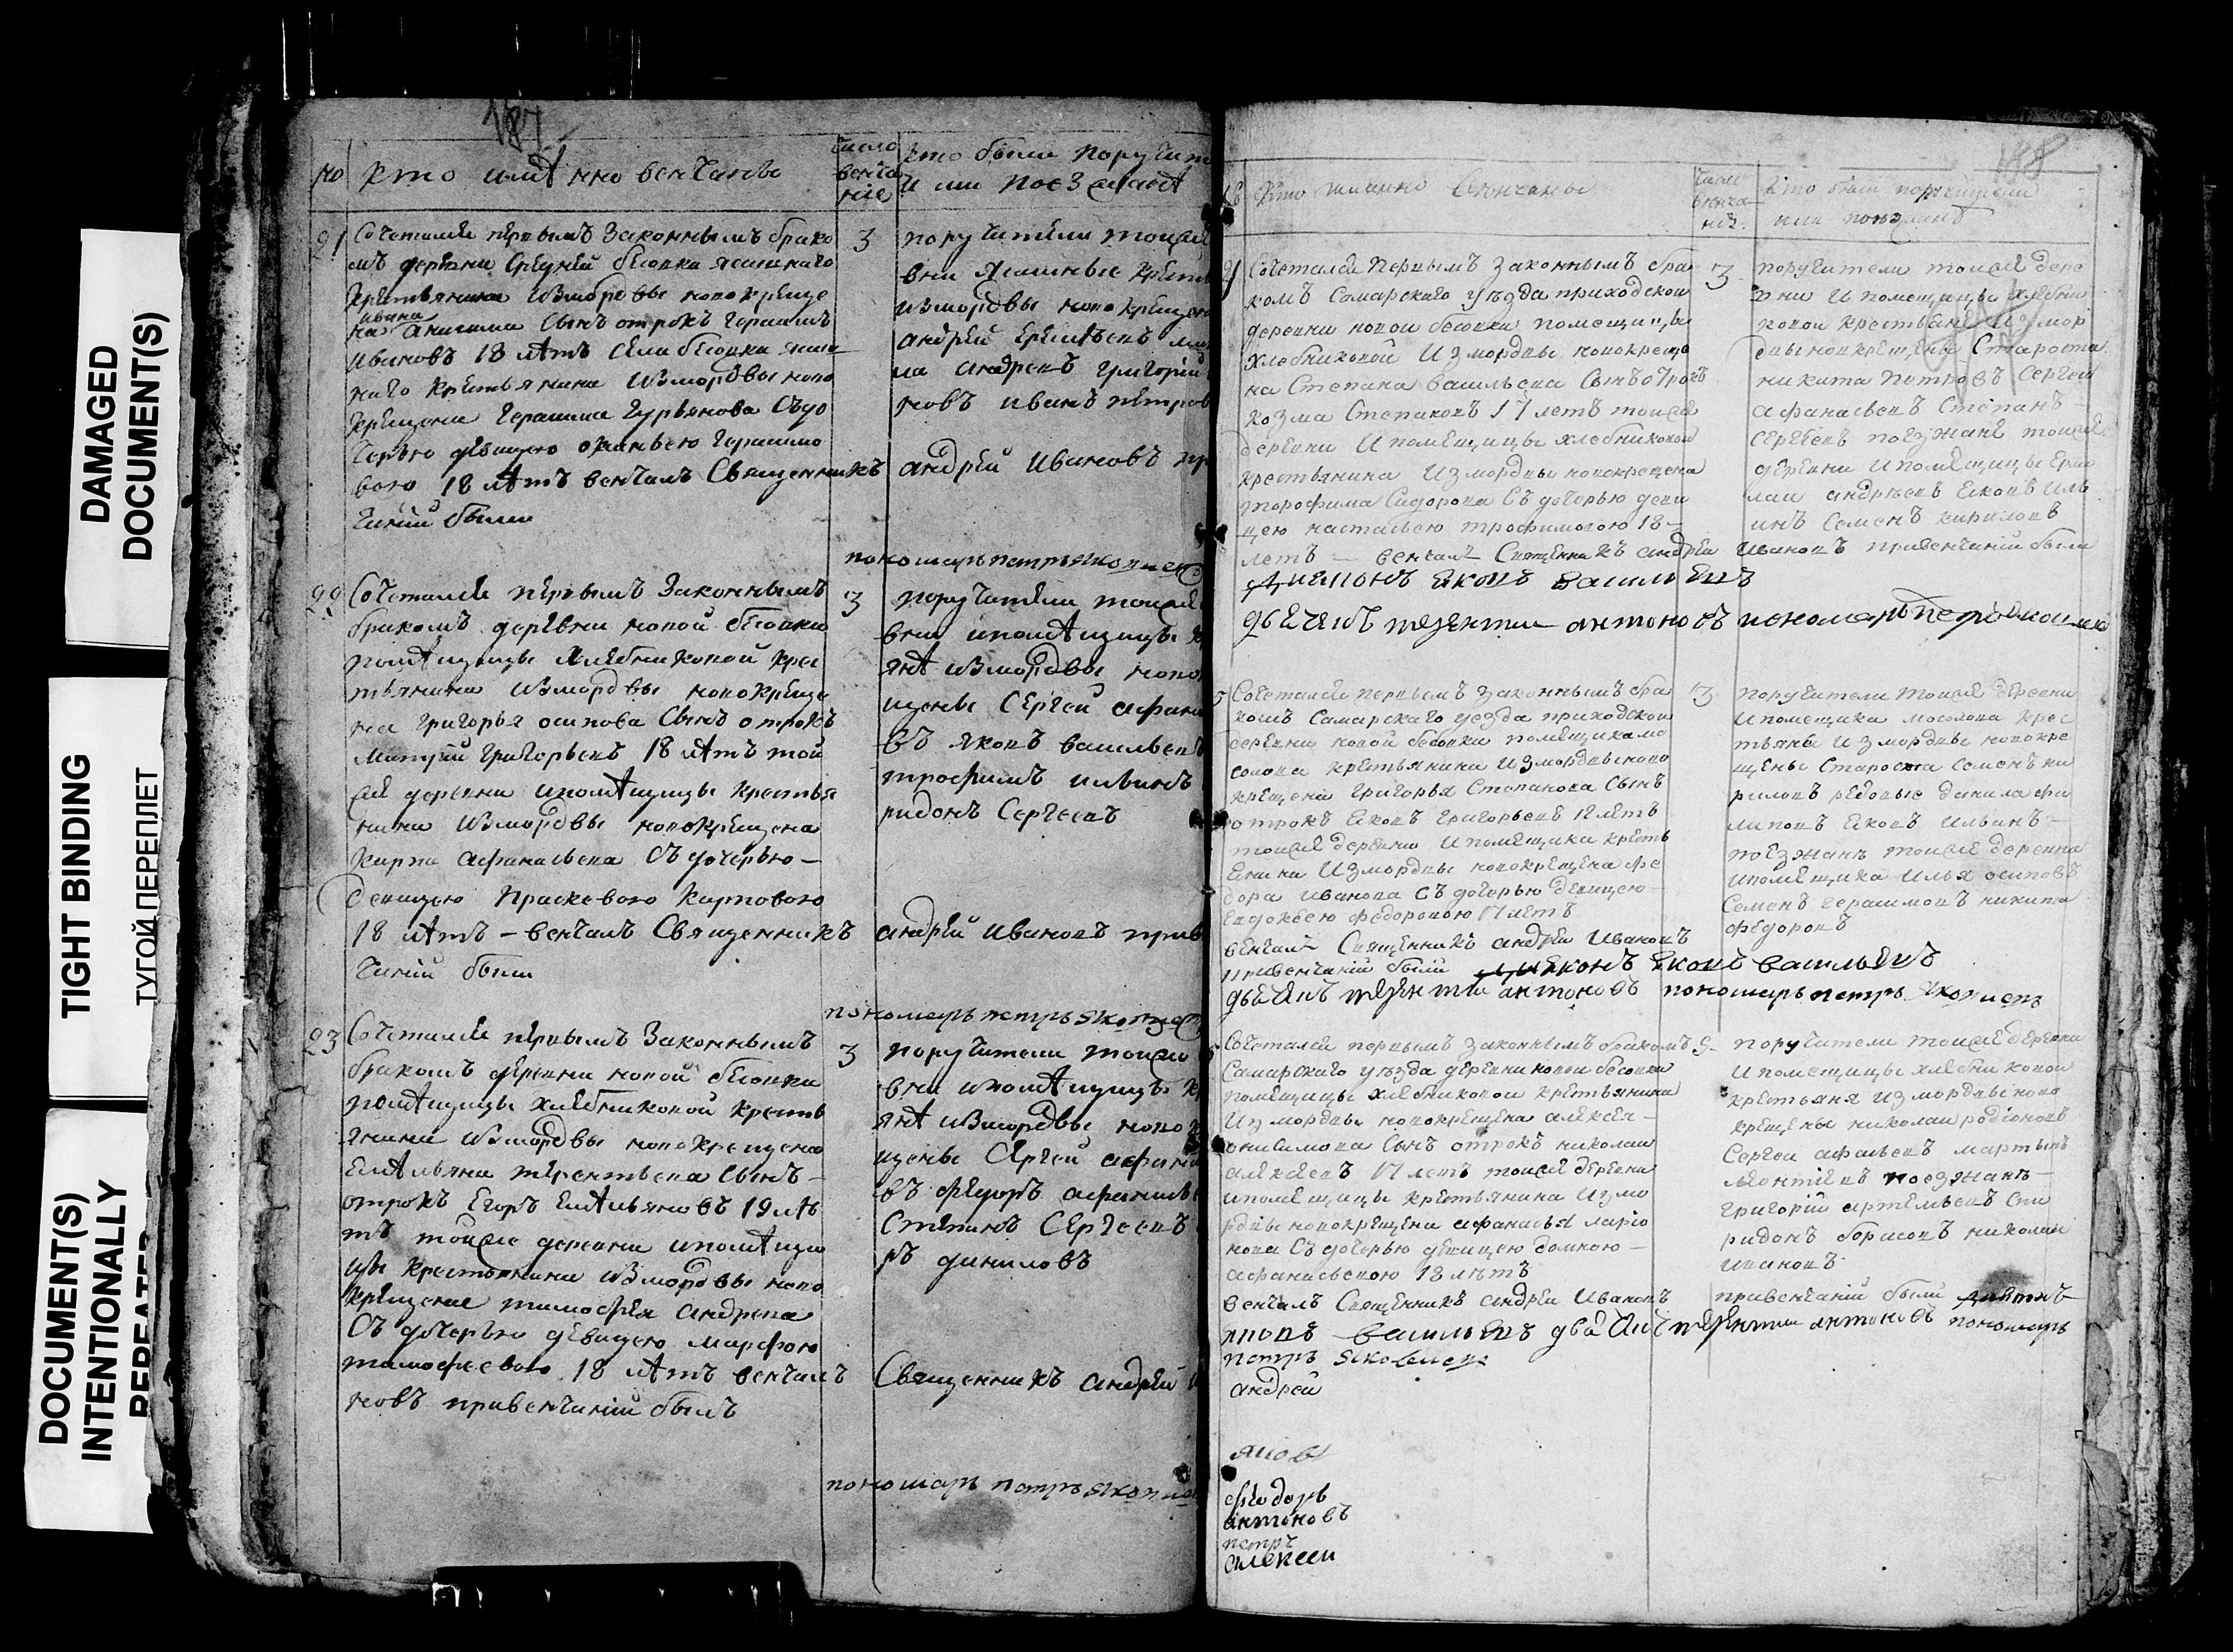 DAMAGED
DOCUMENT(S)
TIGHT BINDING
ТУГОЙ ПЕРЕПЛЕТ
DOCUMENT(S)
INTENTIONALLY
REPEATED
187
№ кто имѧнно венчаны
число
венча
ние
кто были поручит
и ли поезжанѣ
21
Сочетался первымъ Законнымъ брако
мъ деревни Средней бесовки ясашнаго
крестьянина измордвы новокреще
на ивана Сынъ отрокъ герасимъ
ивановъ 18 лѣтъ села бесовки ясаш
наго крестьянина измордвы ново
крещена герасима гурьянова Сдо
черью девицею герасимо
вою 18 лѣтъ венчалъ Священникъ
чиніи были
3
поручители тоиже
вни Ясашные кресть
измордвы новокрещен
андрей еремѣевъ
на андревъ григорий
новъ иванъ петров
андрей Ивановъ пр
пономарь петръ яковлев
22
Сочетался первымъ Законнымъ
бракомъ деревни новой бесовки
помѣщицы Хлебниковой крес
тьянина измордвы новокреще
на григорья осипова Сынъ отрокъ
Митрий григорьевъ 18 лѣтъ той
же деревни ипомѣщицы крестья
нина измордвы новокрещена
карпа афанасьева Съ дочерью –
девицею Прасковею Карповою
18 лѣтъ – венчалъ Священникъ
чиніи были
3
поручители тоиже
вни ипомѣщицы к
янѣ измордвы ново
щены Сергей афана
въ яковъ васильевъ
трофимъ ильинъ
ридонъ Сергеевъ
андрей Ивановъ прив
пономарь петръ яковлев
23
Сочетался первымъ Законнымъ
бракомъ деревни новой бесовки
помѣщицы хлебниковой кресть
янина измордвы новокрещена
емѣльяна терентьева Сынъ –
отрокъ Егоръ Емѣльяновъ 19 лѣ
тъ тойже деревни ипомѣщи
цы крестьянина измордвы ново
крещена тимофея андрева
Съ дочерью девицею марфою
тимофеевою 18 лѣтъ венчалъ
новъ привенчаніи былъ
3
поручители тоиже
вни ипомѣщицы кр
янѣ измордвы ново
щены Сергей афана
въ федоръ афанасьев
Степанъ Сергеевъ
ръ даниловъ
Священникъ андрей И
пономарь петръ яковлев
188
Кто имянно венчаны
число
венча
ніе
Кто были поручители
или поезжанѣ
Сочетался первымъ Законнымъ бра
комъ Самарскаго уѣзда приходской
деревни новой бесовки помещицы
хлебниковой измордвы новокреще
на Степана васильева Сынъ отрокъ
козма Степановъ 17 летъ тоиже
деревни и помещицы хлебниковой
крестьянина измордвы новокрещена
трофима Сидорова Съ дочерью деви
цею настасьею трофимовою 18 –
летъ – венчалъ Священникъ андреи Ивановъ привенчаніи были
3
поручители тоиже дере
вни и помещицы хлебни
ковой крестьяне измор
двы новкрещены Староста
никита петровъ Сергеи
афанасьевъ Степанъ –
Сергеевъ поезжане тоиже
деревни и помещицы ермо
лаи андреевъ яковъ иль
инъ Семенъ кириловъ
диаконъ яковъ васильевъ
дьячекъ терентеи антоновъ пономарь петръ яковлев
Сочетался первымъ Законнымъ бра
комъ Самарскаго уезда приходской
деревни новой бесовки помещика мо
солова крестьянина измордвы ново
крещена григорья Степанова Сынъ
отрокъ яковъ григорьевъ 18 летъ
тоиже деревни и помещика кресть
енина измордвы новокрещена фе
дора Иванова Съ дочерью девицею –
Евдокьею федоровою 17 летъ
венчалъ Священникъ андреи Ивановъ
привенчаніи были диаконъ яковъ васильевъ
дьячекъ терентеи антоновъ пономарь петръ яковлевъ
3
поручители тоиже деревни
и помещика мосолова крес
тьяне измордвы новокре
щены Староста Семенъ ки
риловъ редовые данила фи
липовъ яковъ ильинъ –
поезжанѣ тоиже деревни
ипомещика илья осиповъ
Семенъ герасимовъ никита
федоровъ
Сочетался первымъ Законнымъ бракомъ
Самарскаго уѣзда деревни новой бесовки
помещицы хлебниковой крестьянина
измордвы новокрещена алексея –
онисимова Сынъ отрокъ николаи
алексеевъ 17 летъ тоиже деревни
ипомещицы крестьянина измо
рдвы новокрещена афанасья ларио
нова Съ дочерью девицею домною –
афанасьевою 18 летъ
венчалъ Священникъ андреи Ивановъ привенчаніи были диаконъ
яковъ васильевъ дьячекъ терентеи антоновъ пономарь
петръ яковлевъ
поручители тоиже деревни
и помещицы хлебниковой
крестьяня измордвы ново
крещены николаи родионовъ
Сергеи афаньевъ мартынъ
леонтиевъ поезжанѣ –
григорій артемьевъ Спи
ридонъ борисовъ николаи
ивановъ
андрей
яков
фиодоръ
антоновъ
петръ
алексеи